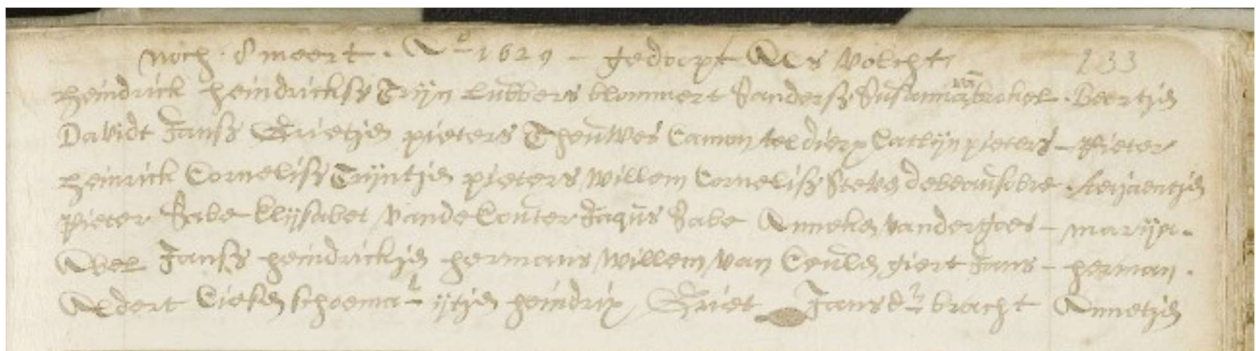 noch · 8 meert · Ao 1629 – gedoopt Als volcht 133
heindrick heindricksz Trijn Lubbers blommert Sandersz Susanna van brokel · Beertjen
Davidt Jansz Grietjen pieters Theuwes Camon Catlijn pieters – Pieter
heinrick Cornelisz Trijntjen pieters willem Cornelisz
pieter Sabe Elijsabet vande Couter Jaques Sabe Anneken vander goes – marija ·
Abel Jansz heindrickjen hermans willem van Ceulen giert Jans – herman ·
Aldert schoemar ijtjen heindrix Griet Jans bracht Annetjen